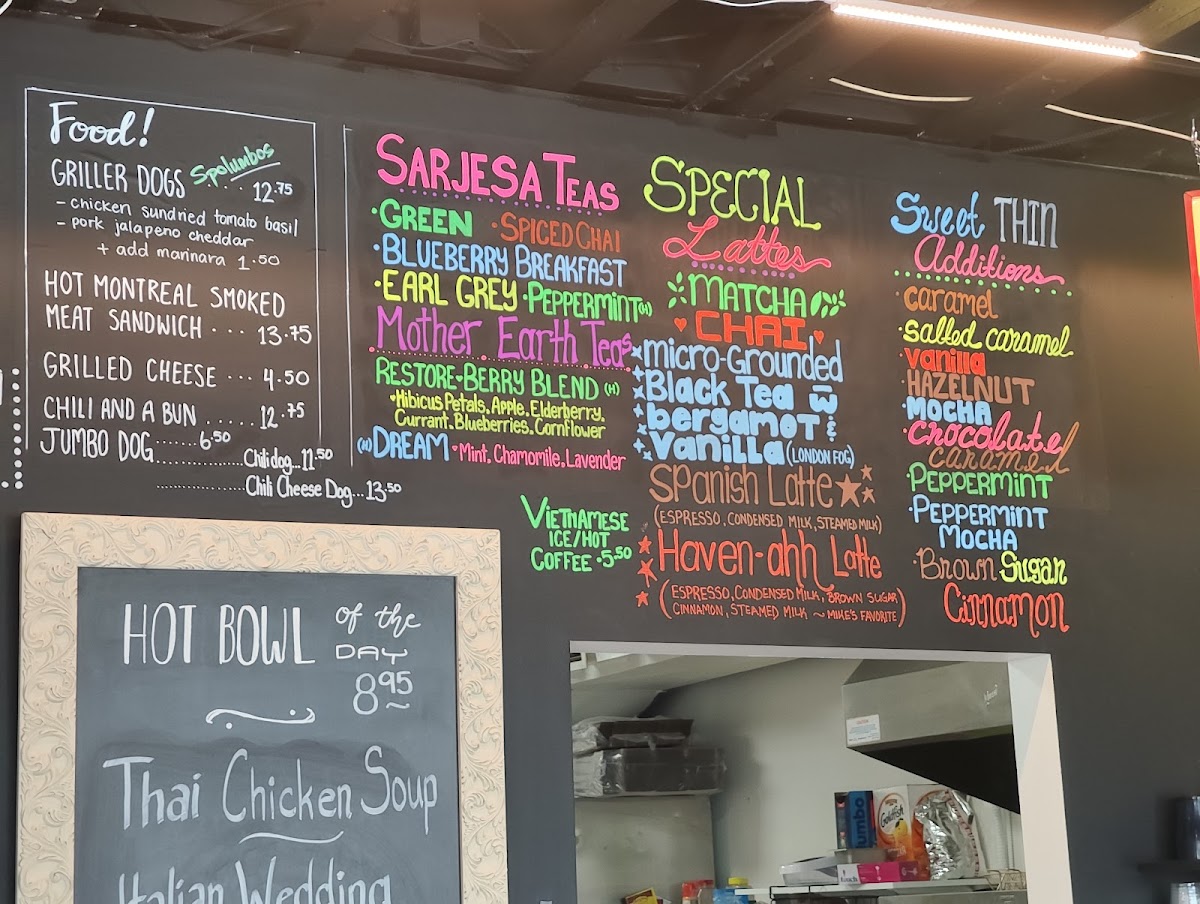 Food!
GRILLER DOGS Spolumbos .... 12.75
- chicken sundried tomato basil
- pork jalapeno cheddar
+ add marinara 1.50
HOT MONTREAL SMOKED
MEAT SANDWICH ... 13.75
GRILLED CHEESE ... 4.50
CHILI AND A BUN ...... 12.75
JUMBO DOG...... 6.50
Chili dog...11.50
Chili Cheese Dog...13.50
HOT BOWL of the
DAY
8.95
Thai Chicken Soup
Italian Wedding
SARJESA TEAS
·GREEN ·SPICED CHAI
·BLUEBERRY BREAKFAST
·EARL GREY ·PEPPERMINT(H)
Mother Earth Teas
RESTORE♥BERRY BLEND (H)
♥Hibicus Petals, Apple, Elderberry,
Currant, Blueberries, Cornflower
(H)DREAM♥Mint, Chamomile, Lavender
VIETNAMESE
ICE/HOT
COFFEE ·5.50
SPECIAL
Lattes
MATCHA
♥CHAI♥
micro-Grounded
Black Tea w
bergamot &
Vanilla (LONDON FOG)
Spanish Latte
(ESPRESSO, CONDENSED MILK, STEAMED MILK)
Haven-ahh Latte
(ESPRESSO, CONDENSED MILK, BROWN SUGAR
CINNAMON, STEAMED MILK ~ MIKE'S FAVORITE)
Sweet THIN
Additions
·caramel
·salted caramel
·vanilla
·HAZELNUT
·MOCHA
·chocolate
caramel
·PEPPERMINT
·PEPPERMINT
MOCHA
·Brown Sugar
Cinnamon
Goldfish